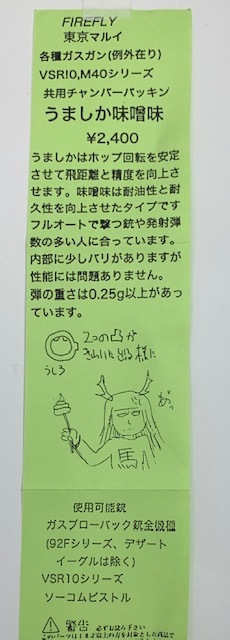 FIREFLY
東京マルイ
各種ガスガン(例外在り)
VSR!0,M40シリーズ
共用チャンバーパッキン
うましか味噌味
¥2,400
うましかはホップ回転を安定
させて飛距離と精度を向上さ
せます。味噌味は耐油性と耐
久性を向上させたタイプです
フルオートで撃つ銃や発射弾
数の多い人に合っています。
内部に少しバリがありますが
性能には問題ありません。
弾の重さは0.25g以上があっ
ています。
2つの凸が
きれいに出る様に
うしろ
馬
使用可能銃
ガスブローバック銃全機種
(92Fシリーズ、デザート
イーグルは除く)
VSR10シリーズ
ソーコムピストル
警告 必ずお読み下さい
このパーツは18才以上の方を対象とした商品で